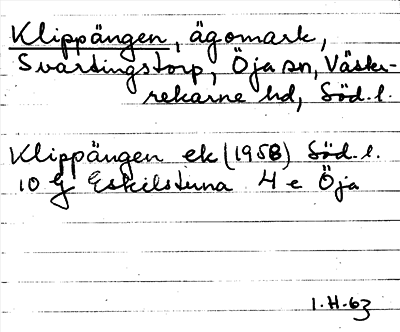 Klippängen, ägomark,
Svartingstorp, Öja sn, Väster-
rekarne hd, Söd. l.
Klippängen ek (1958) Söd. l.
10 G Eskilstuna 4 e Öja
1.H.63